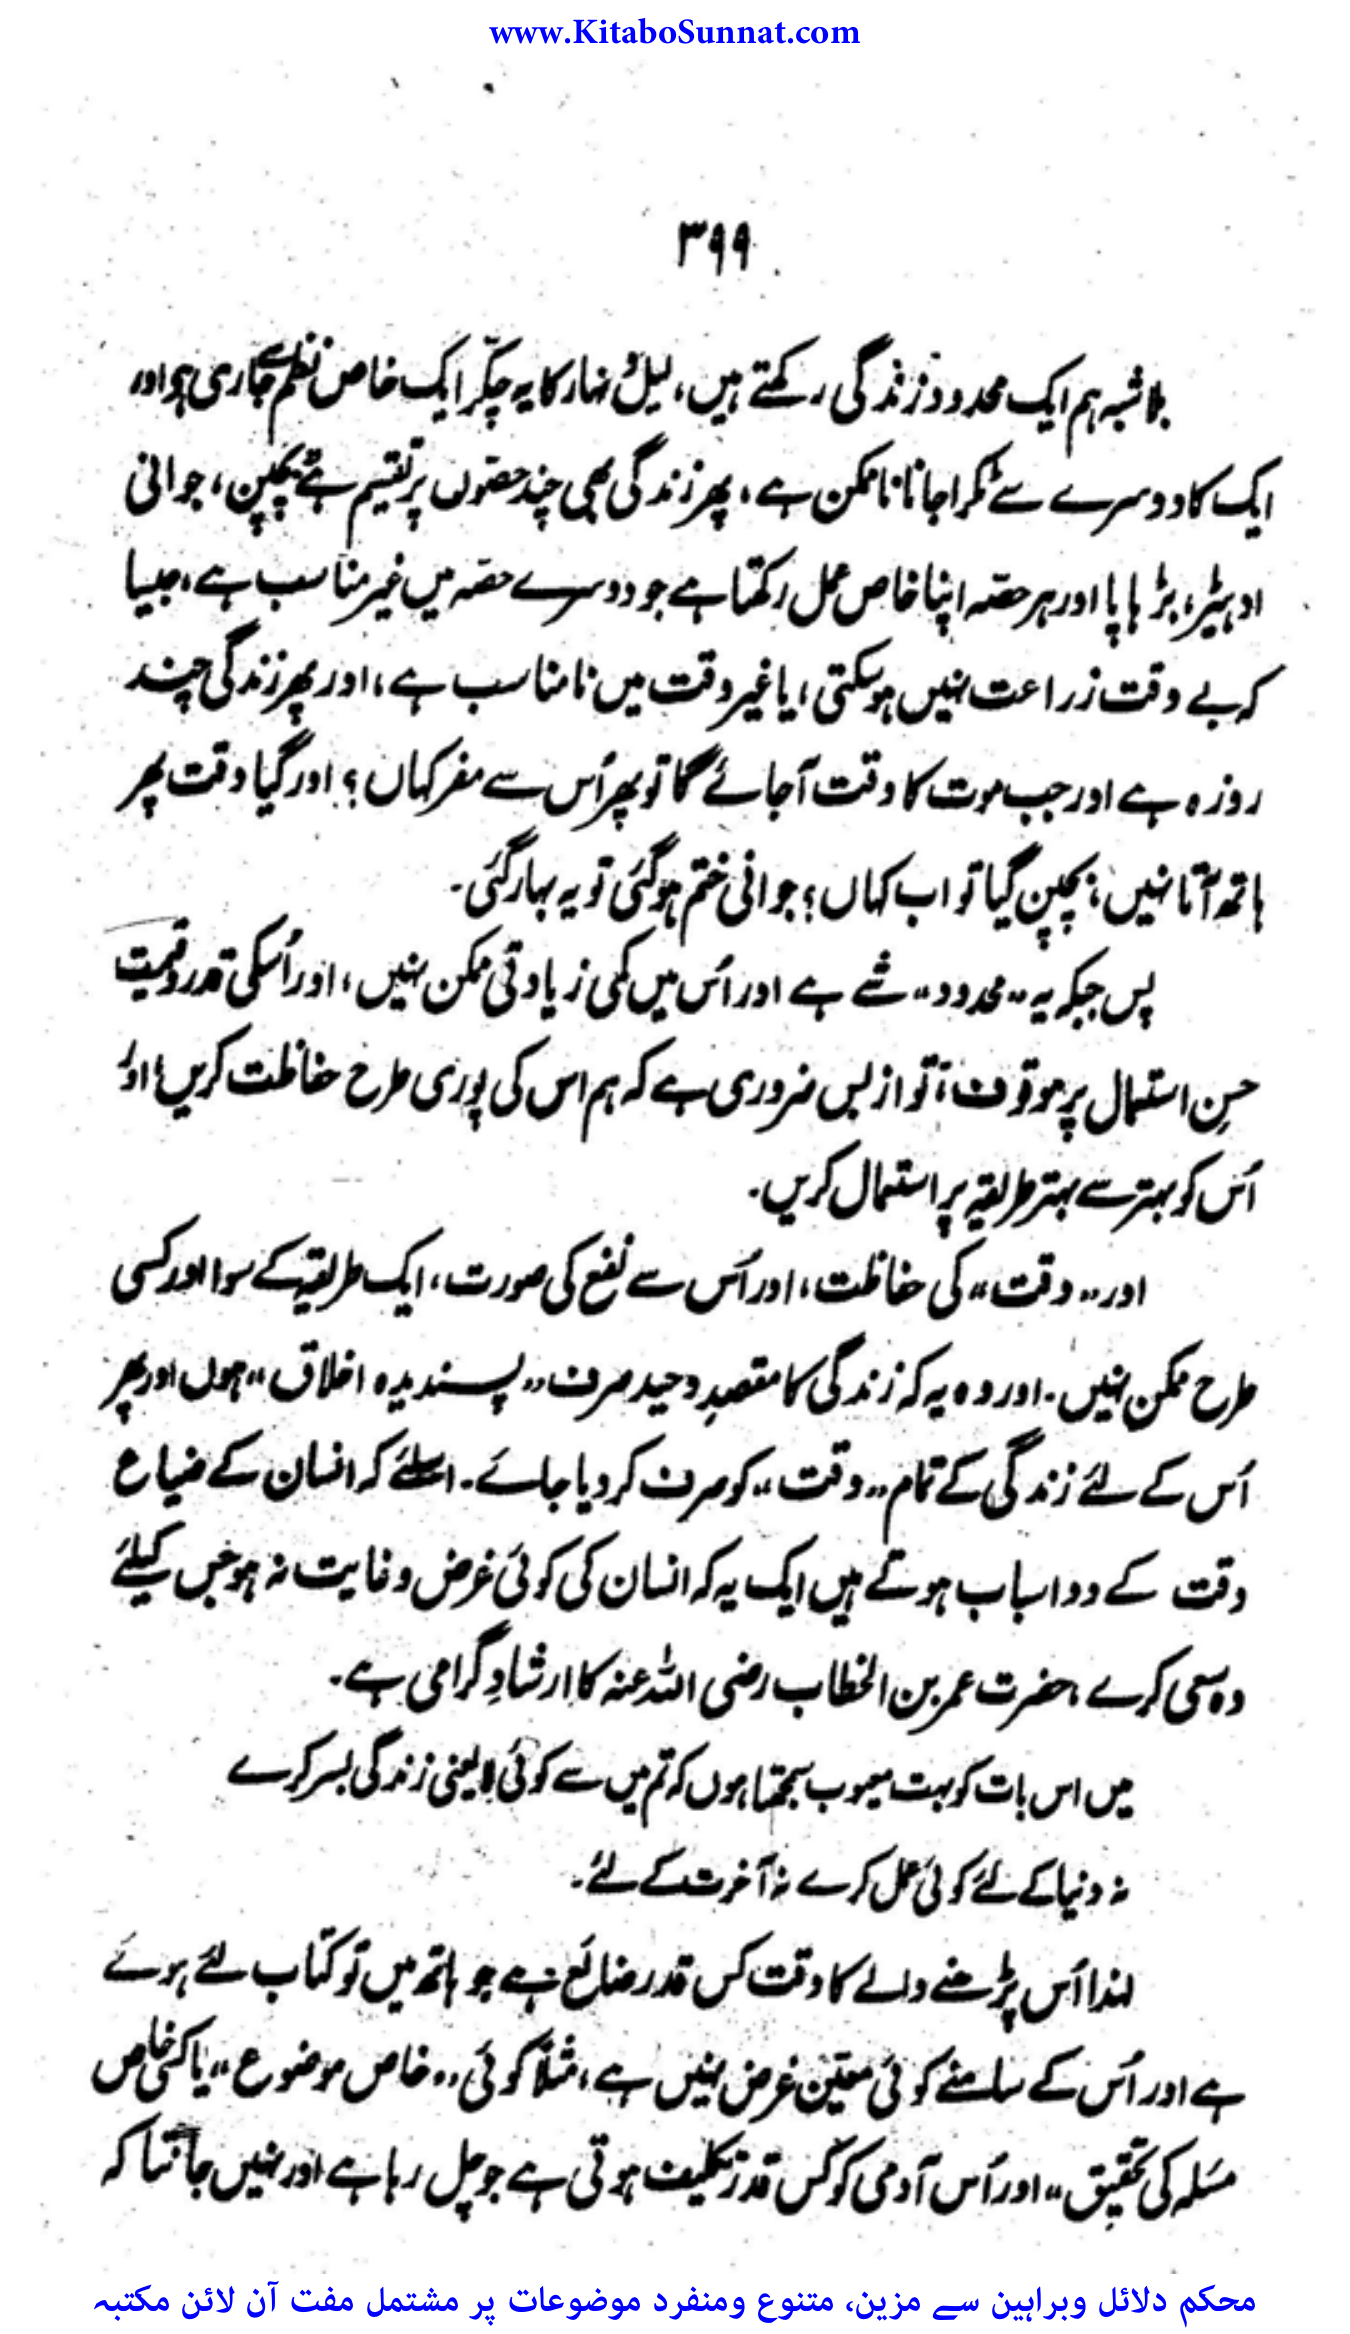 www.KitaboSunnat.com
۳۹۹
بلاشبہ ہم ایک محدود زندگی رکھتے ہیں، لیل و نہار کا یہ چکّر ایک خاص نظم سے جاری ہے اور
ایک کا دوسرے سے ٹکرا جانا ناممکن ہے، پھر زندگی بھی چند حصّوں پر تقسیم ہے بچپن، جوانی
ادہیڑ، بڑہاپا اور ہر حصّہ اپنا خاص عمل رکھتا ہے جو دوسرے حصّہ میں غیر مناسب ہے، جیسا
کہ بے وقت زراعت نہیں ہو سکتی، یا غیر وقت میں نامناسب ہے، اور پھر زندگی چند
روزہ ہے اور جب موت کا وقت آ جائے گا تو پھر اُس سے مفر کہاں؟ اور گیا وقت پھر
ہاتھ آتا نہیں، بچپن گیا تو اب کہاں؟ جوانی ختم ہو گئی تو یہ بہار گئی۔
پس جبکہ یہ ”محدود“ شے ہے اور اُس میں کمی زیادتی ممکن نہیں، اور اُسکی قدر و قیمت
حسنِ استعمال پر موقوف، تو ازبس ضروری ہے کہ ہم اس کی پوری طرح حفاظت کریں، اور
اُس کو بہتر سے بہتر طریقہ پر استعمال کریں۔
اور ”وقت“ کی حفاظت، اور اُس سے نفع کی صورت، ایک طریقہ کے سوا اور کسی
طرح ممکن نہیں۔ اور وہ یہ کہ زندگی کا مقصدِ وحید صرف ”پسندیدہ اخلاق“ ہوں اور پھر
اُس کے لئے زندگی کے تمام ”وقت“ کو صرف کر دیا جائے۔ اسلئے کہ انسان کے ضیاع
وقت کے دو اسباب ہوتے ہیں ایک یہ کہ انسان کی کوئی غرض و غایت نہ ہو جس کیلئے
وہ سعی کرے، حضرت عمر بن الخطاب رضی اللہ عنہ کا ارشادِ گرامی ہے۔
میں اس بات کو بہت معیوب سمجھتا ہوں کہ تم میں سے کوئی لایعنی زندگی بسر کرے
نہ دنیا کے لئے کوئی عمل کرے نہ آخرت کے لئے۔
لہذا اُس پڑھنے والے کا وقت کس قدر ضائع ہے جو ہاتھ میں تو کتاب لئے ہوئے
ہے اور اُس کے سامنے کوئی معیّن غرض نہیں ہے، مثلاً کوئی ”خاص موضوع“ یا کسی خاص
مسٔلہ کی تحقیق“ اور اُس آدمی کو کس قدر تکلیف ہوتی ہے جو چل رہا ہے اور نہیں جانتا کہ
محکم دلائل وبراہین سے مزین، متنوع ومنفرد موضوعات پر مشتمل مفت آن لائن مکتبہ